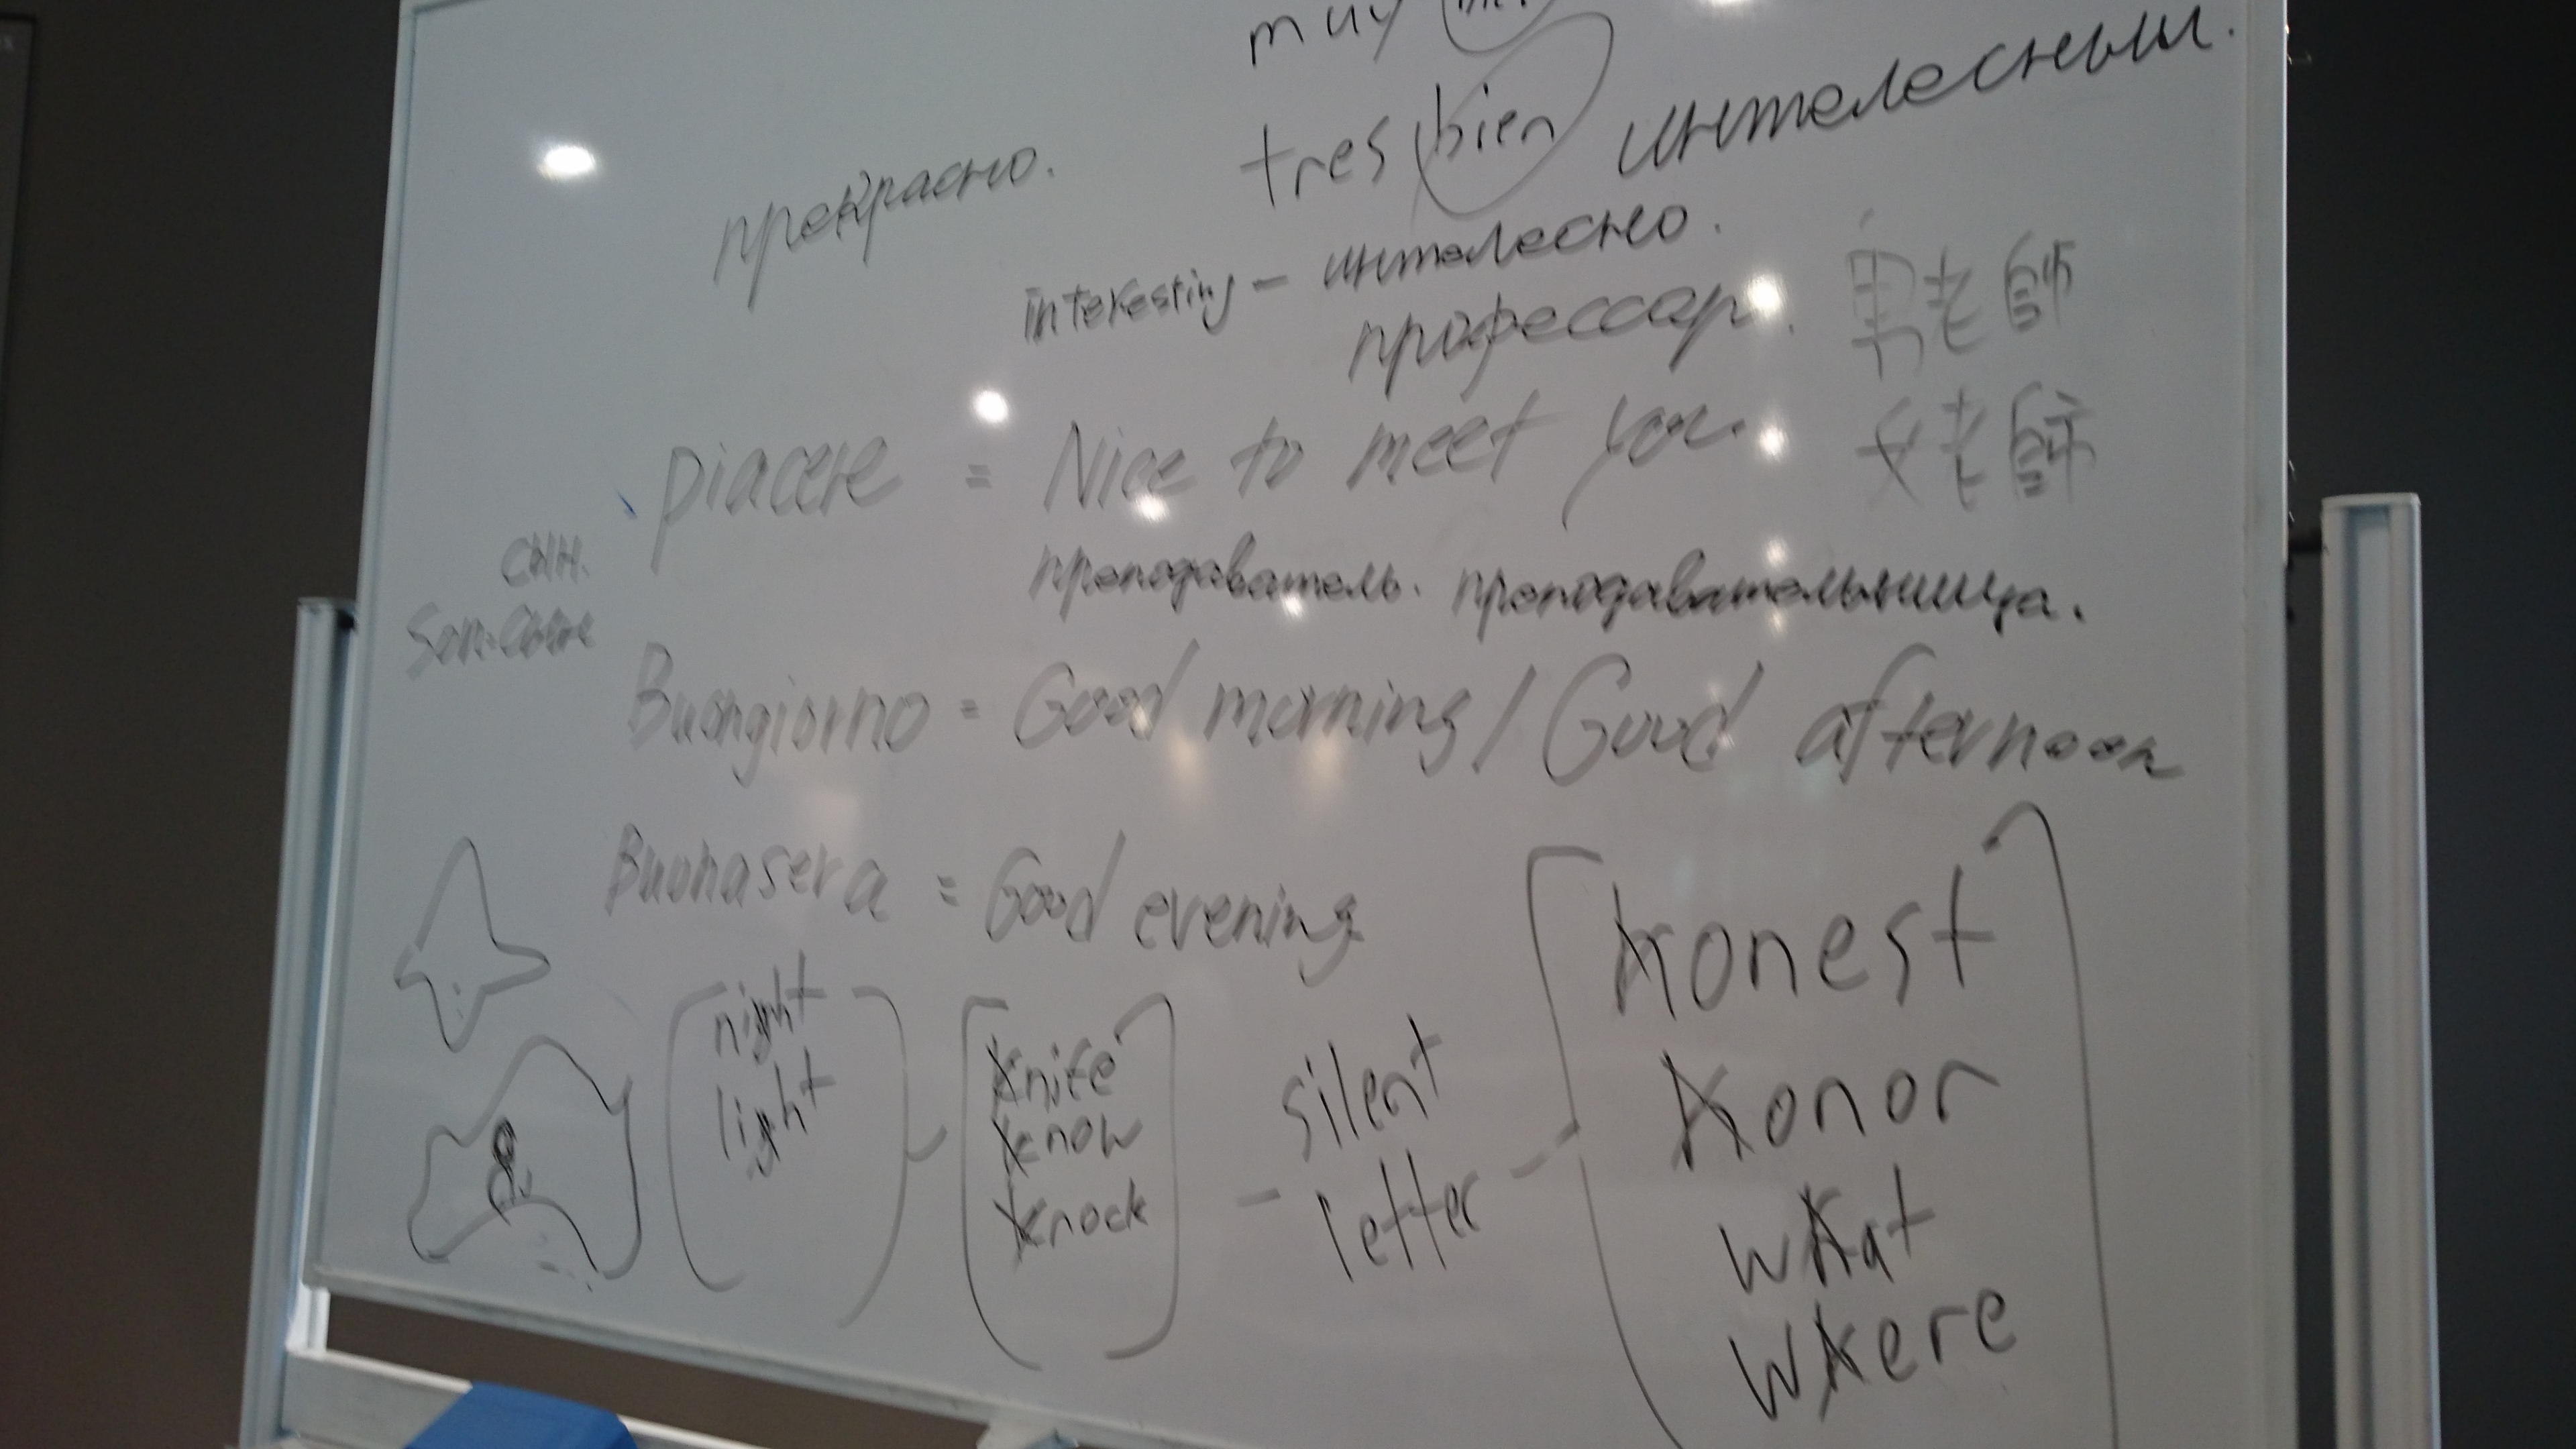 muy
tres bien
интелесный.
прекрасно.
interesting - интелесно.
профессор.
男老師
piacere = Nice to meet you.
女老師
сын.
преподаватель. преподавательница.
Buongiorno = Good morning / Good afternoon
Buonasera = Good evening
night
light
knife
know
knock
silent
letter
honest
honor
what
where